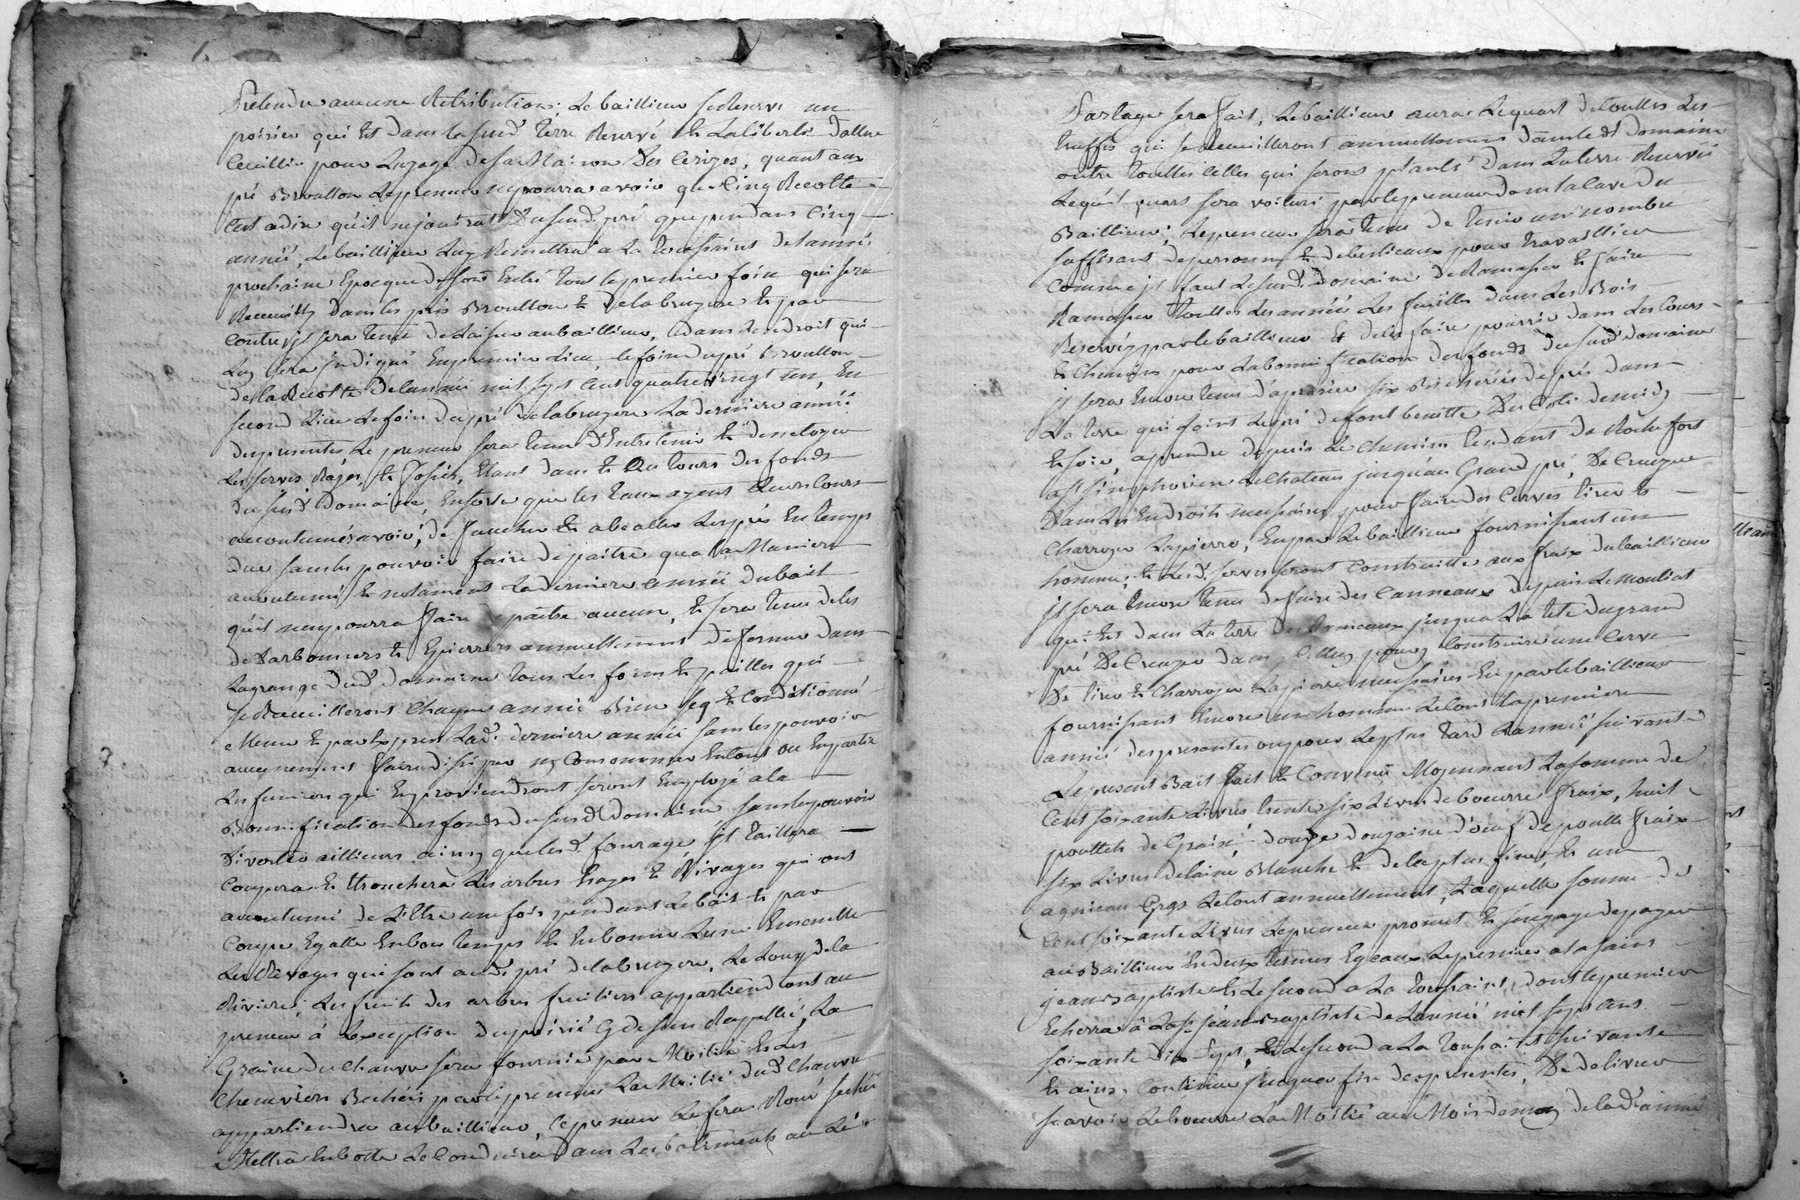 Pretendre aucune Retribution. Le baillieur se Reserve un
poirier qui Est dans la susd. terre Reservé Et la liberté d'aller
Ceuillir pour Luzage de sa Maison Des Cerizes, quant aux
pré Brouillon Le preneur ne pourra avoir que Cinq Recolte
Cest a dire qu'il ne jouira Dususd. pré que pendant Cinq
année, Le baillieur Luy Remettra a La toussaint de l'anné
prochaine Epoque de son Entré tout le premier foin qui sera
Receuilly dans les prés Brouillon Et de la bruyere Et par
contre il sera tenu de Laisser au baillieur, dans Lendroit qui
Luy sera Indiqué En premier Lieu le foin du pré Brouillon
de la Recolte de l'année mil sept Cent quatre vingt un, En
second Lieu Le foin du pré de la bruyere La derniere année
des presentes Le preneur sera tenu d'Entretenir Et
Les serves Razes, Et fossés, Etant dans Et aux tours des fonds
du susd. Domaine, En sorte que les Eaux ayent Leurs Cours
accoutumé savoir, de faucher Et abcaller Les prés En temps
due sans les pouvoir faire depaitre qua la Maniere
accoutumé Et notament La derniere année du bail
qu'il ne pourra faire paitre aucun, Et sera tenu de les
Darbonner Et Epierrer annuellement de fermer dans
La grange dud. domaine tous Les foins Et pailles qui
se Receuilleront Chaque année Bien seq Et Conditionné
Meme Et par Exprès Lad. derniere année sans les pouvoir
aucunement faire disiper ny Consommer En tout ou En partie
Les fumiers qui En proviendront seront Employé a la
Bonnification des fonds du susd. domaine sans les pouvoir
Divertir aillieurs ainsy que les d. fourage, jl taillera
Coupera Et tronchera Les arbres hayes Et Rivages qui ont
accoutumé de L'Etre une fois pendant Le bail Et par
Coupe Egalle En bon temps Et En bonne Lune
Les Rivages qui sont aud. pré de la bruyere, Le Long de la
Riviere, Les fruits des arbres fruitiers appartiendront au
preneur à L'exception du poirié Cy dessus Rappellé, La
Graine du Chanvre sera fournie par Moitié Et Les
Cheneviers Bechés par le preneur La Moitié dud. Chanvre
appartiendra au baillieur, le preneur Le fera Roüir sechér
Mettra En botte Le Conduira Dans Les batiments au Le
Partage sera fait, Le baillieur aura Le quart de toutes Les
truffes qui se Receuilleront annuellement dans led. Domaine
outre toutes celles qui seront planté Dans La terre Reservée
Lequel quart sera voituré par le preneur dans la Cave du
Baillieur, Le preneur sera tenu de tenir un nombre
suffisant de personnes Et de bestiaux pour travaillier
Comme il faut Le susd. Domaine de Ramasser Et faire
Ramasser toutes Les années Les feuilles dans Les Bois
Reservés par le baillieur Et de les faire pourrir dans Les Cours
Et Chemins pour La bonnification des fonds du susd. domaine
jl sera Encore tenu d'apraier six Bicherées de prés dans
La terre qui joint Le pré de font benitte Du Coté de midy
Et soir, a prendre depuis Le Chemin tendant De Rochefort
a st simphorien Le Chateau jusqu'au Grand pré, De Creuzer
Dans Les Endroits necessaires pour faire des serves tirer Et
Charroyer La pierre, En par Le baillieur fournissant un
homme, Et Les d. serves seront Construitte aux fraix du baillieur
jl sera Encore tenu de faire des Canneaux depuis Le moulint
qui Est dans La terre jusqu'a La tete du grand
pré De Creuzer dans pour Construire une serve
De tirer Et Charroyer La pierre necessaire En par le baillieur
fournissant Encore un homme Le tout La premiere
année des presentes ou pour Le plus tard L'année suivante
Le present Bail fait Et Convenu Moyennant La somme de
Cent soixante Livres trente six Livres de beurre fraix, huit
poullets de Graisse douze douzaine d'oeuf de poulle fraix
six Livres de laine Blanche Et de la plus fine, Et un
agnieau Gras Le tout annuellement, Laquelle somme de
Cent soixante Livres Le preneur promet Et s'engage de payer
au Baillieur En deux termes Egeaux Le premier a la saint
jean Baptiste Et Le second a La toussaint dont le premier
Echerra à La st jean Baptiste de L'année mil sept Cent
soixante dix sept, Et Le second a La toussaint suivante
Et ainsy Continuer jusqua fin des presentes, De delivrer
scavoir Le beurre La Moitié au Mois de may de lad. année